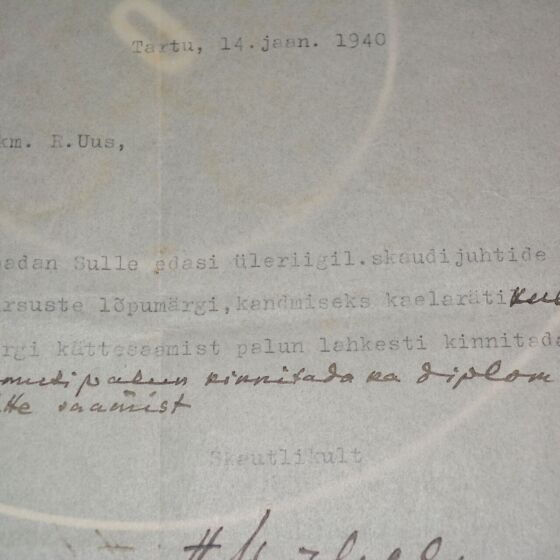 Tartu, 14.jaan. 1940
km. R.Uus,
adan Sulle edasi üleriigil.skaudijuhtide
rsuste lõpumärgi,kandmiseks kaelaräti
rgi kättesaamist palun lahkesti kinnitada
palun kinnitada ka diplom
tte saamist
Skautlikult